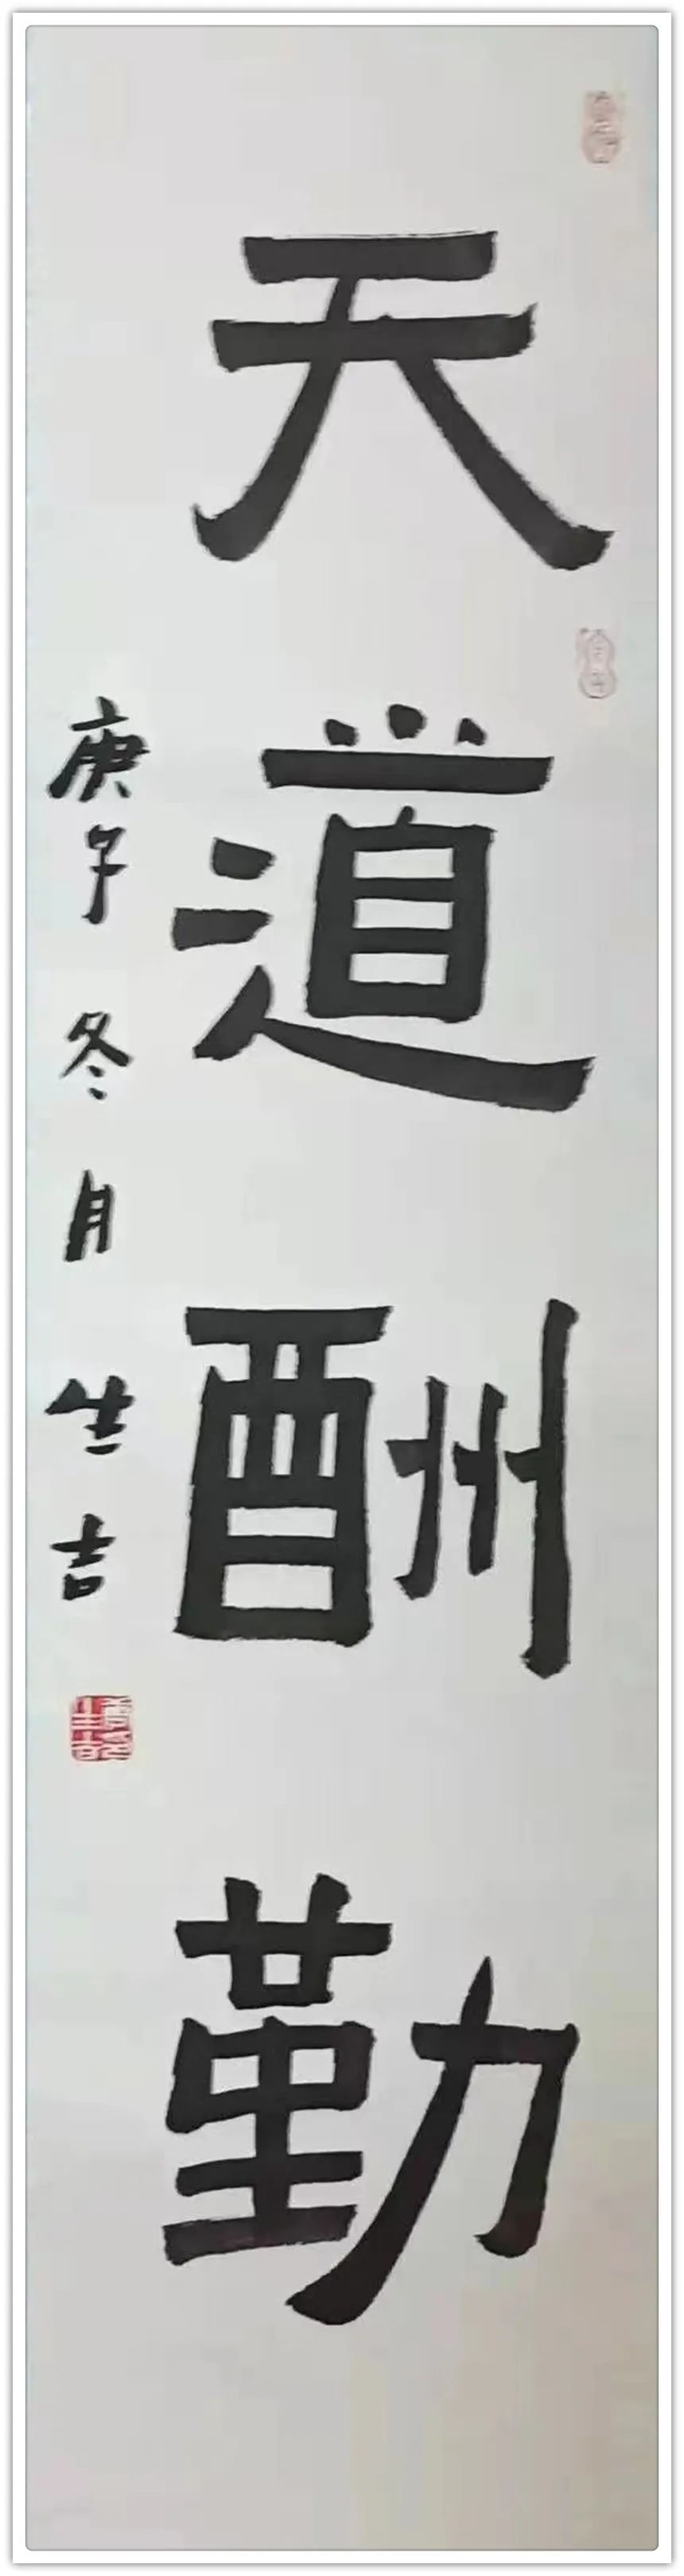 天道酬勤
庚午冬月生吉